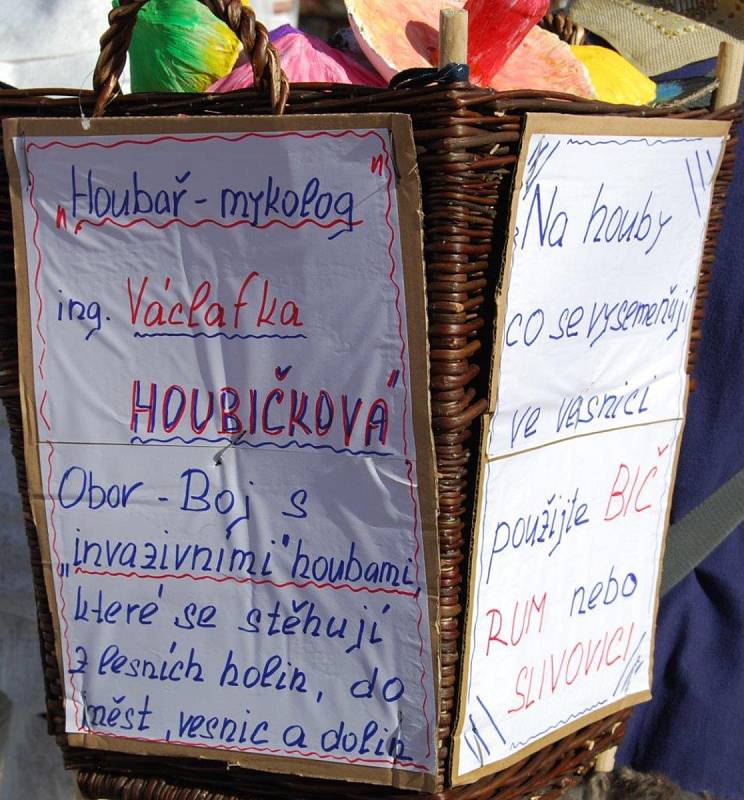 "Houbař - mykolog
ing. Václafka
HOUBIČKOVÁ"
Obor - Boj s
„invazivními" houbami,
které se stěhují
z lesních holin, do
měst, vesnic a dolin
Na houby
co se vysemeňují
ve vésnici
použijte BIČ
RUM nebo
SLIVOVICI